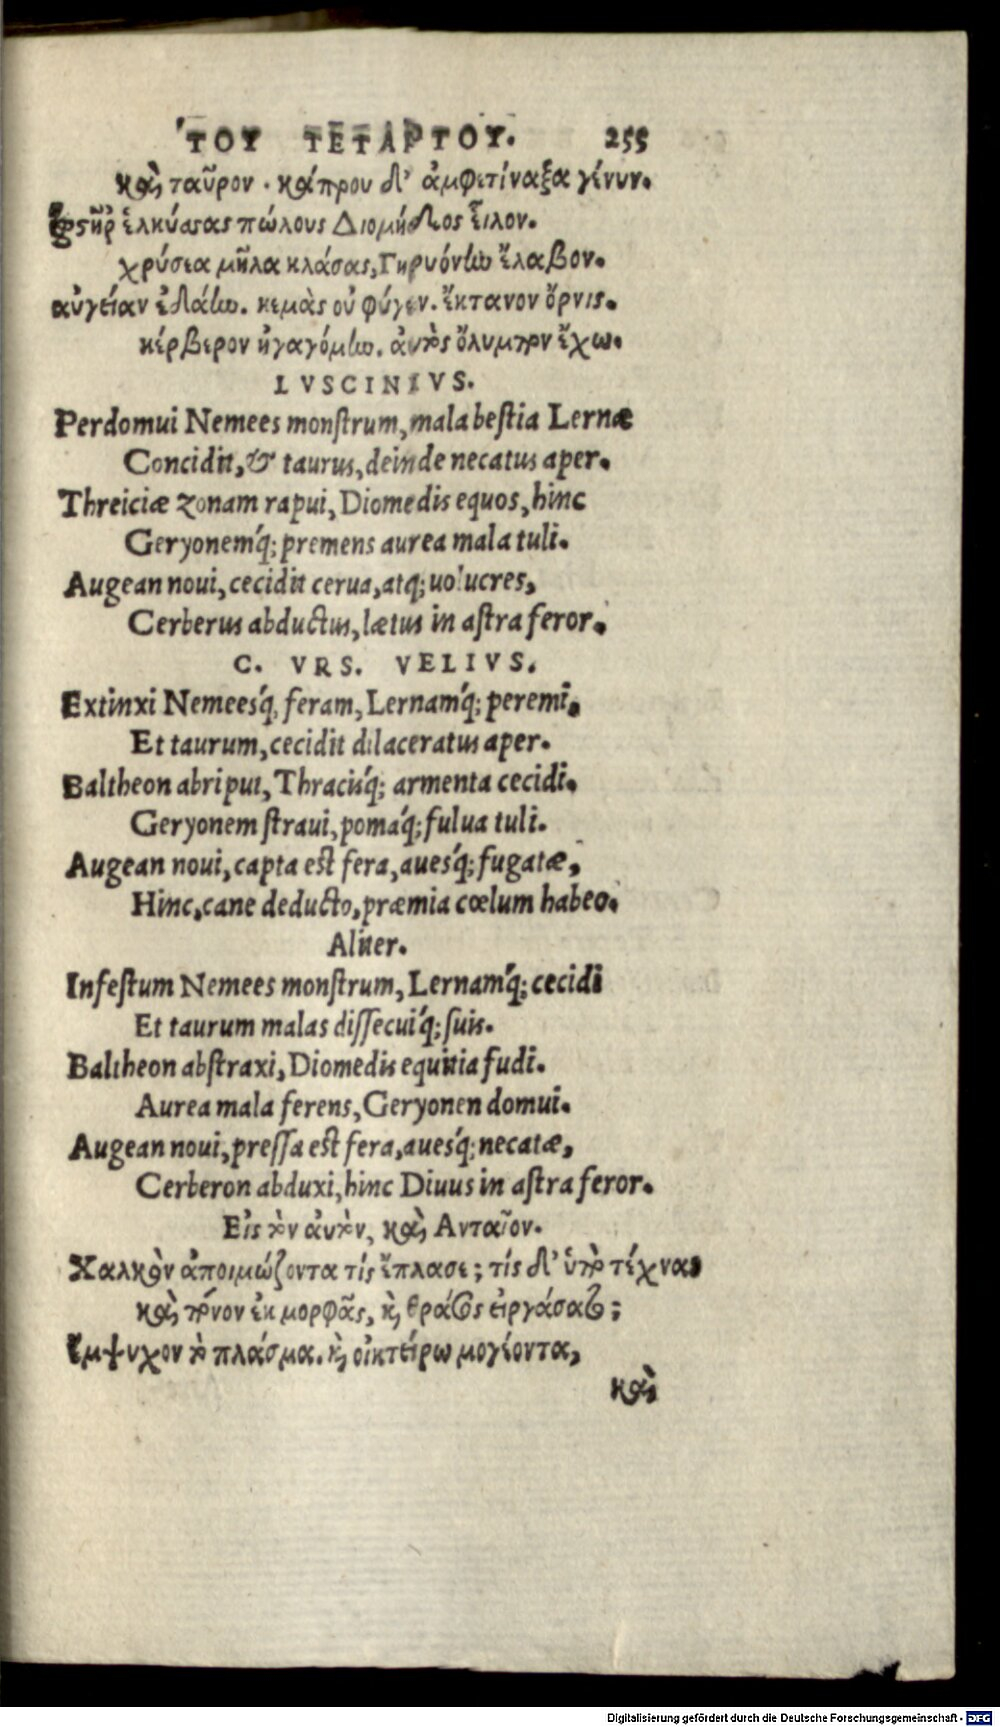 ΤΟΥ ΤΕΤΑΡΤΟΥ. 255
καὶ ταῦρον. κάπρου δ' ἀμφετίναξα γένυν.
ζωστῆρ' ἑλκύσας πώλους Διομήδεος εἷλον.
χρύσεα μῆλα κλάσας, Γηρυόνην ἔλαβον.
αὐγείαν ἐδάην. κεμὰς οὐ φύγεν. ἔκτανον ὄρνις.
κέρβερον ἠγαγόμην. αὐτὸς ὄλυμπον ἔχω.
LVSCINIVS.
Perdomui Nemees monstrum, mala bestia Lernæ
Concidit, & taurus, deinde necatus aper.
Threiciæ zonam rapui, Diomedis equos, hinc
Geryonemq́; premens aurea mala tuli.
Augean noui, cecidit cerua, atq; uolucres,
Cerberus abductus, lætus in astra feror.
C. VRS. VELIVS.
Extinxi Nemeesq́, feram, Lernamq́; peremi.
Et taurum, cecidit dilaceratus aper.
Baltheon abripui, Thraciiq́; armenta cecidi.
Geryonem straui, pomaq́; fulua tuli.
Augean noui, capta est fera, auesq́; fugatæ,
Hinc, cane deducto, præmia cœlum habeo.
Aliter.
Infestum Nemees monstrum, Lernamq́; cecidi
Et taurum malas dissecuiq́; suis.
Baltheon abstraxi, Diomedis equitia fudi.
Aurea mala ferens, Geryonen domui.
Augean noui, pressa est fera, auesq́; necatæ,
Cerberon abduxi, hinc Diuus in astra feror.
Εἰς τὸν αὐτὸν, καὶ Ανταῖον.
Χαλκὸν ἀποιμώζοντα τίς ἔπλασε; τίς δ' ὑπὸ τέχνας
καὶ πόνον ἐκ μορφᾶς, καὶ θράσος εἰργάσατο;
Εμψυχον τὸ πλάσμα. καὶ οἰκτείρω μογέοντα,
καὶ
Digitalisierung gefördert durch die Deutsche Forschungsgemeinschaft - DFG